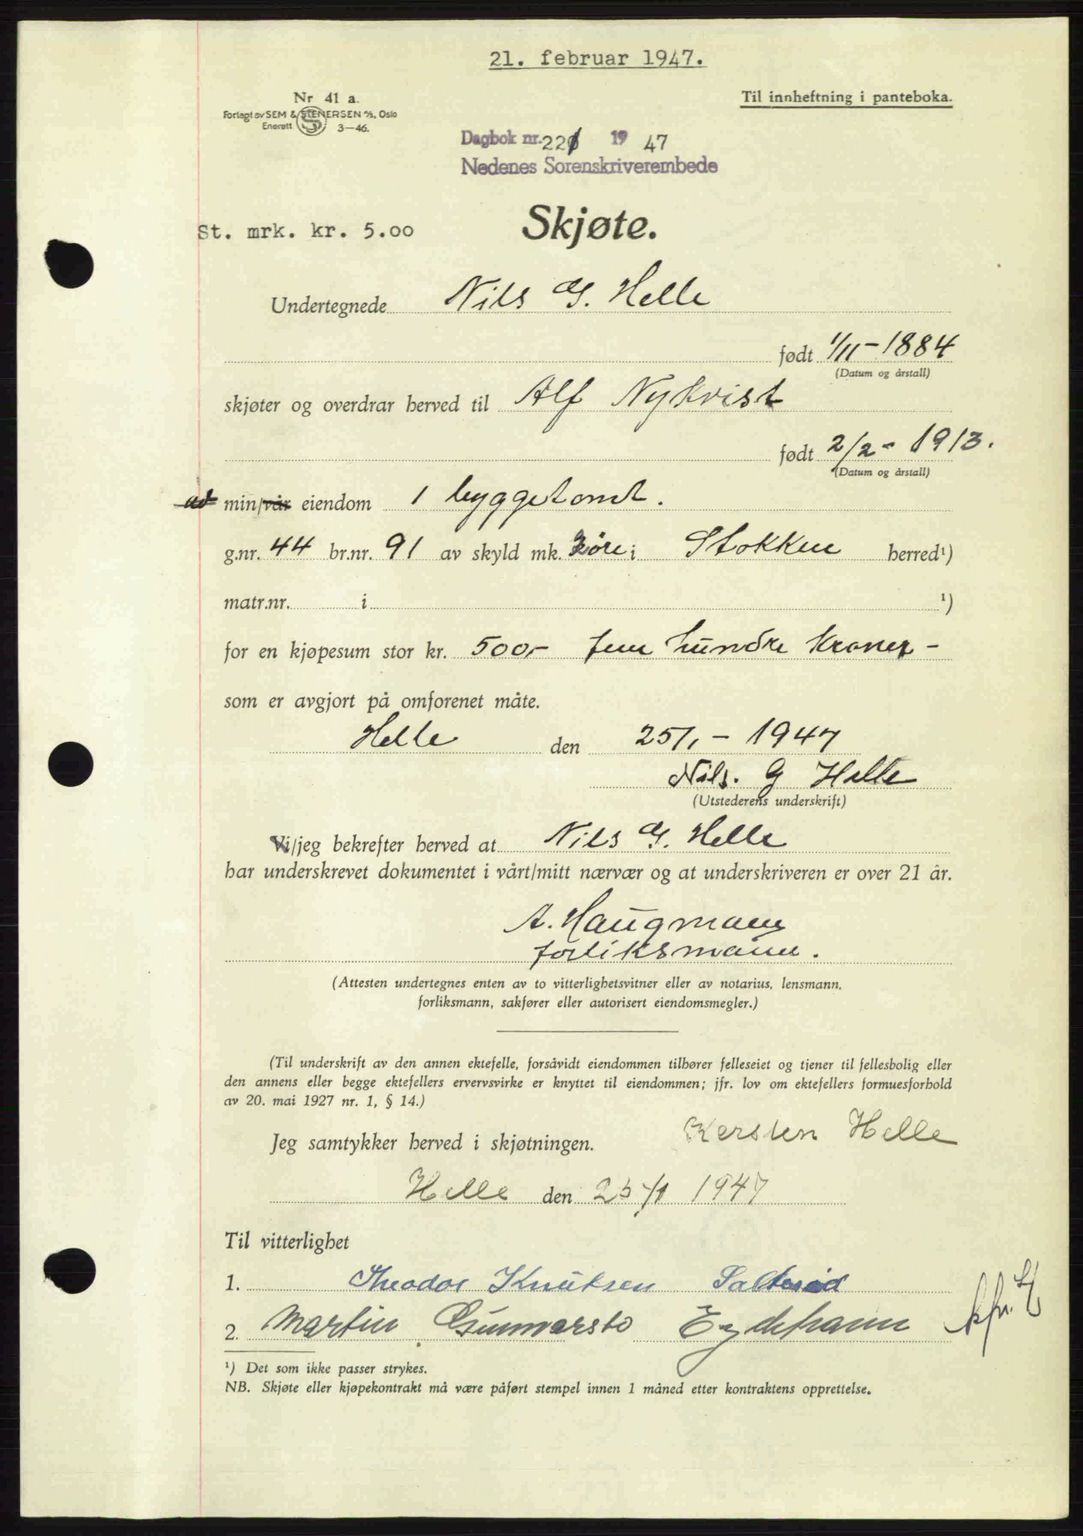 21. februar 1947.
Nr 41 a.
Til innheftning i panteboka.
Forlagt av SEM & STENERSEN A/S, Oslo
Enerett 3-46.
Dagbok nr. 221 1947
Nedenes Sorenskriverembede
St. mrk. kr. 5.00
Skjøte.
Undertegnede Nils G. Helle
født 1/11-1884
(Datum og årstall)
skjøter og overdrar herved til Alf Nykvist
født 2/2-1913.
(Datum og årstall)
min/vår eiendom 1 byggetomt.
g.nr. 44 br.nr. 91 av skyld mk. øre i Stokken herred¹)
matr.nr. i ¹)
for en kjøpesum stor kr. 500,- fem hundre kroner -
som er avgjort på omforenet måte.
Helle den 25/1-1947
Nils. G Helle
(Utstederens underskrift)
Vi/jeg bekrefter herved at Nils G. Helle
har underskrevet dokumentet i vårt/mitt nærvær og at underskriveren er over 21 år.
A. Haugmann
forliksmann.
(Attesten undertegnes enten av to vitterlighetsvitner eller av notarius, lensmann,
forliksmann, sakfører eller autorisert eiendomsmegler.)
(Til underskrift av den annen ektefelle, forsåvidt eiendommen tilhører felleseiet og tjener til fellesbolig eller
den annens eller begge ektefellers ervervsvirke er knyttet til eiendommen; jfr. lov om ektefellers formuesforhold
av 20. mai 1927 nr. 1, § 14.)
Jeg samtykker herved i skjøtningen. Kersten Helle
Helle den 25/1 1947
Til vitterlighet
1. Theodor Knutsen Salterød
2. Martin Gunnarsbo Eydehavn
¹) Det som ikke passer strykes.
NB. Skjøte eller kjøpekontrakt må være påført stempel innen 1 måned etter kontraktens opprettelse.